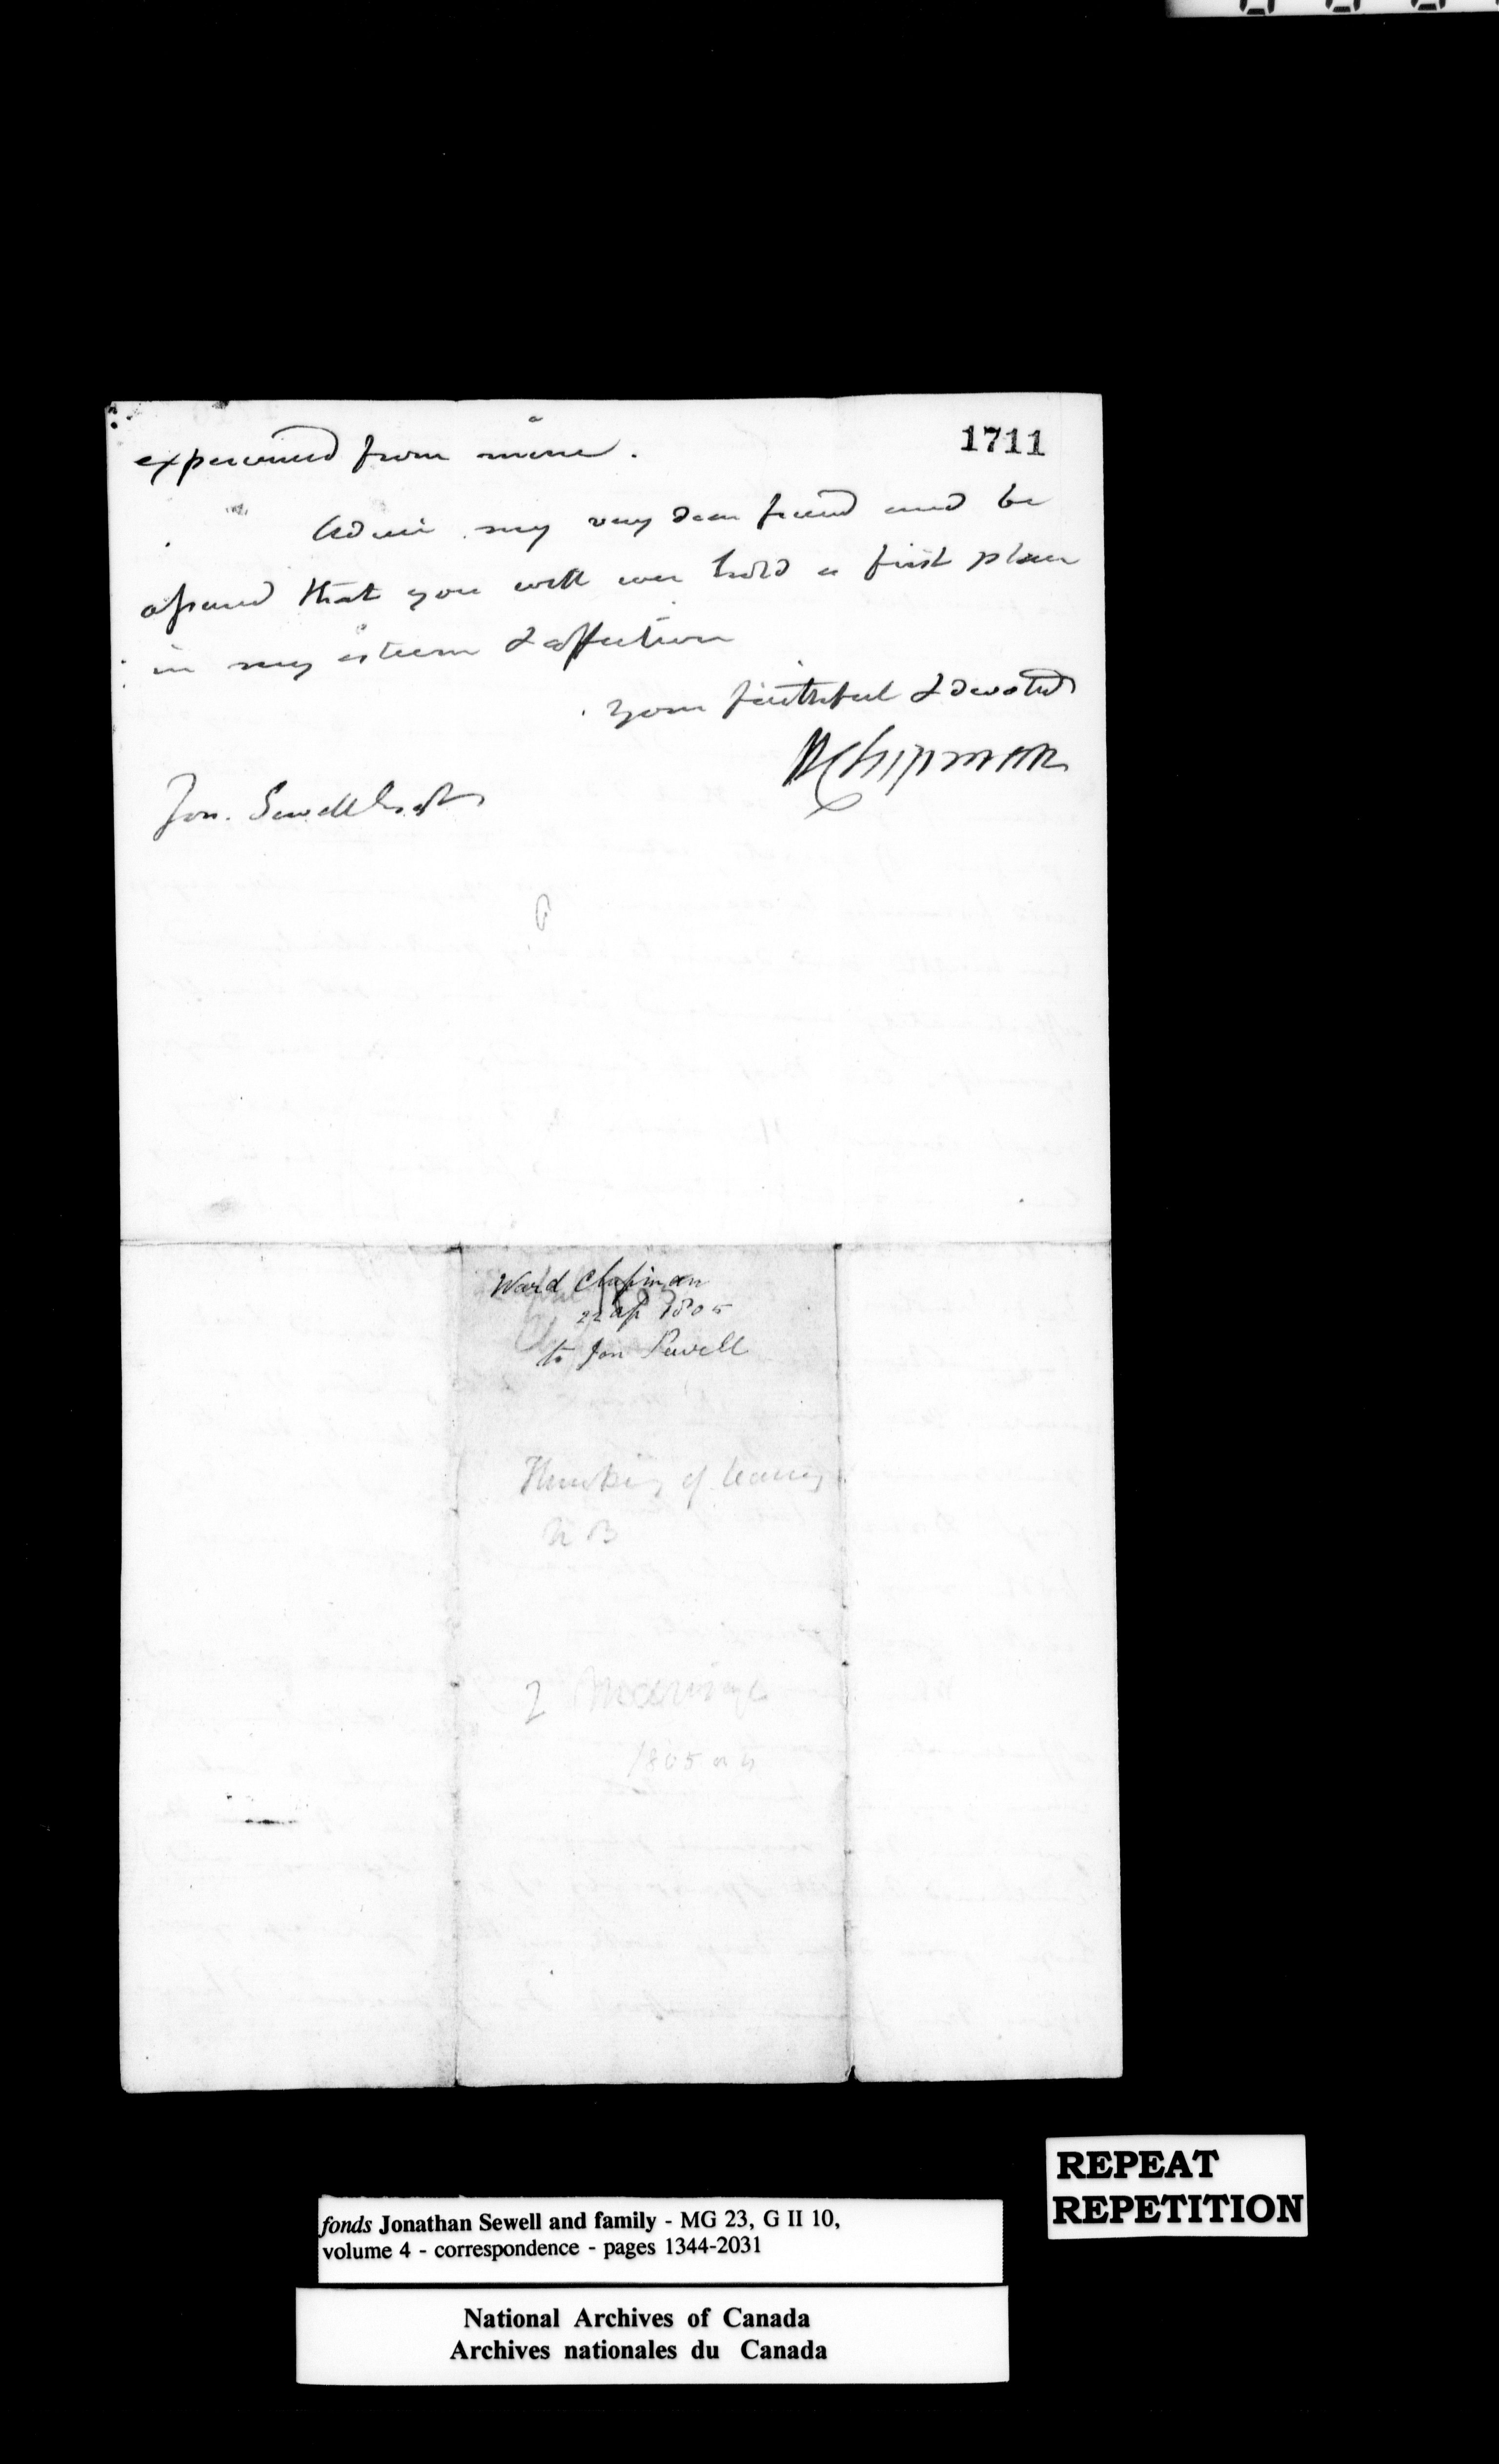 1711
experienced from mine.
Adieu my very dear friend and be
assured that you will ever hold a first place
in my esteem & affection
your faithful & devoted
W Chipman
Jon. Sewell Esqr
Ward Chipman
22 Ap 1805
to Jon Sewell
Thinking of leaving
N B
2
1805
REPEAT
REPETITION
fonds Jonathan Sewell and family - MG 23, G II 10,
volume 4 - correspondence - pages 1344-2031
National Archives of Canada
Archives nationales du Canada